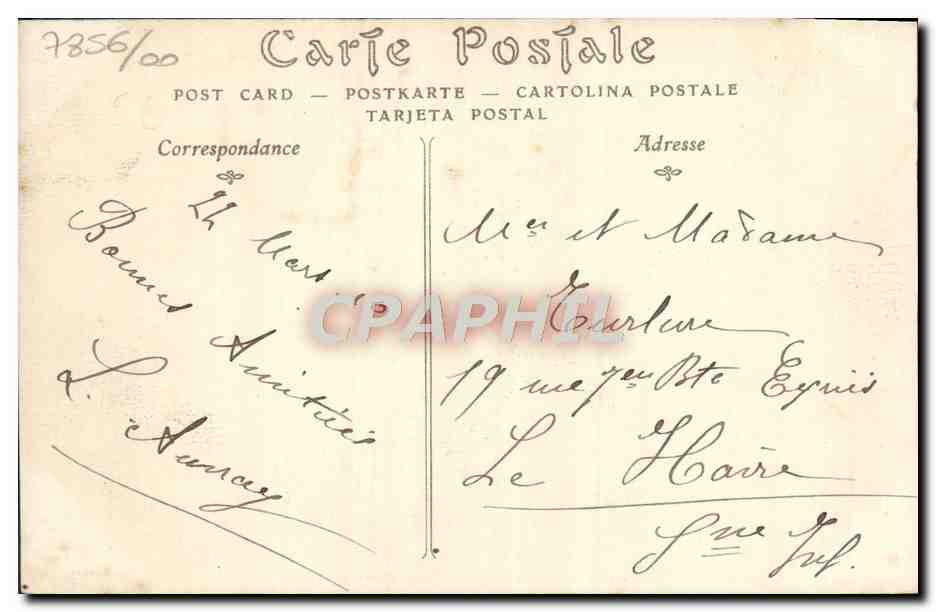 7856/00
Carte Postale
POST CARD — POSTKARTE — CARTOLINA POSTALE
TARJETA POSTAL
Correspondance
22 Mars 10
Bonnes Amitiés
L. Aunay
Adresse
Mer et Madame
Turlure
19 rue Jn Bte Eyriès
Le Havre
Sne Inf.
CPAPHIL